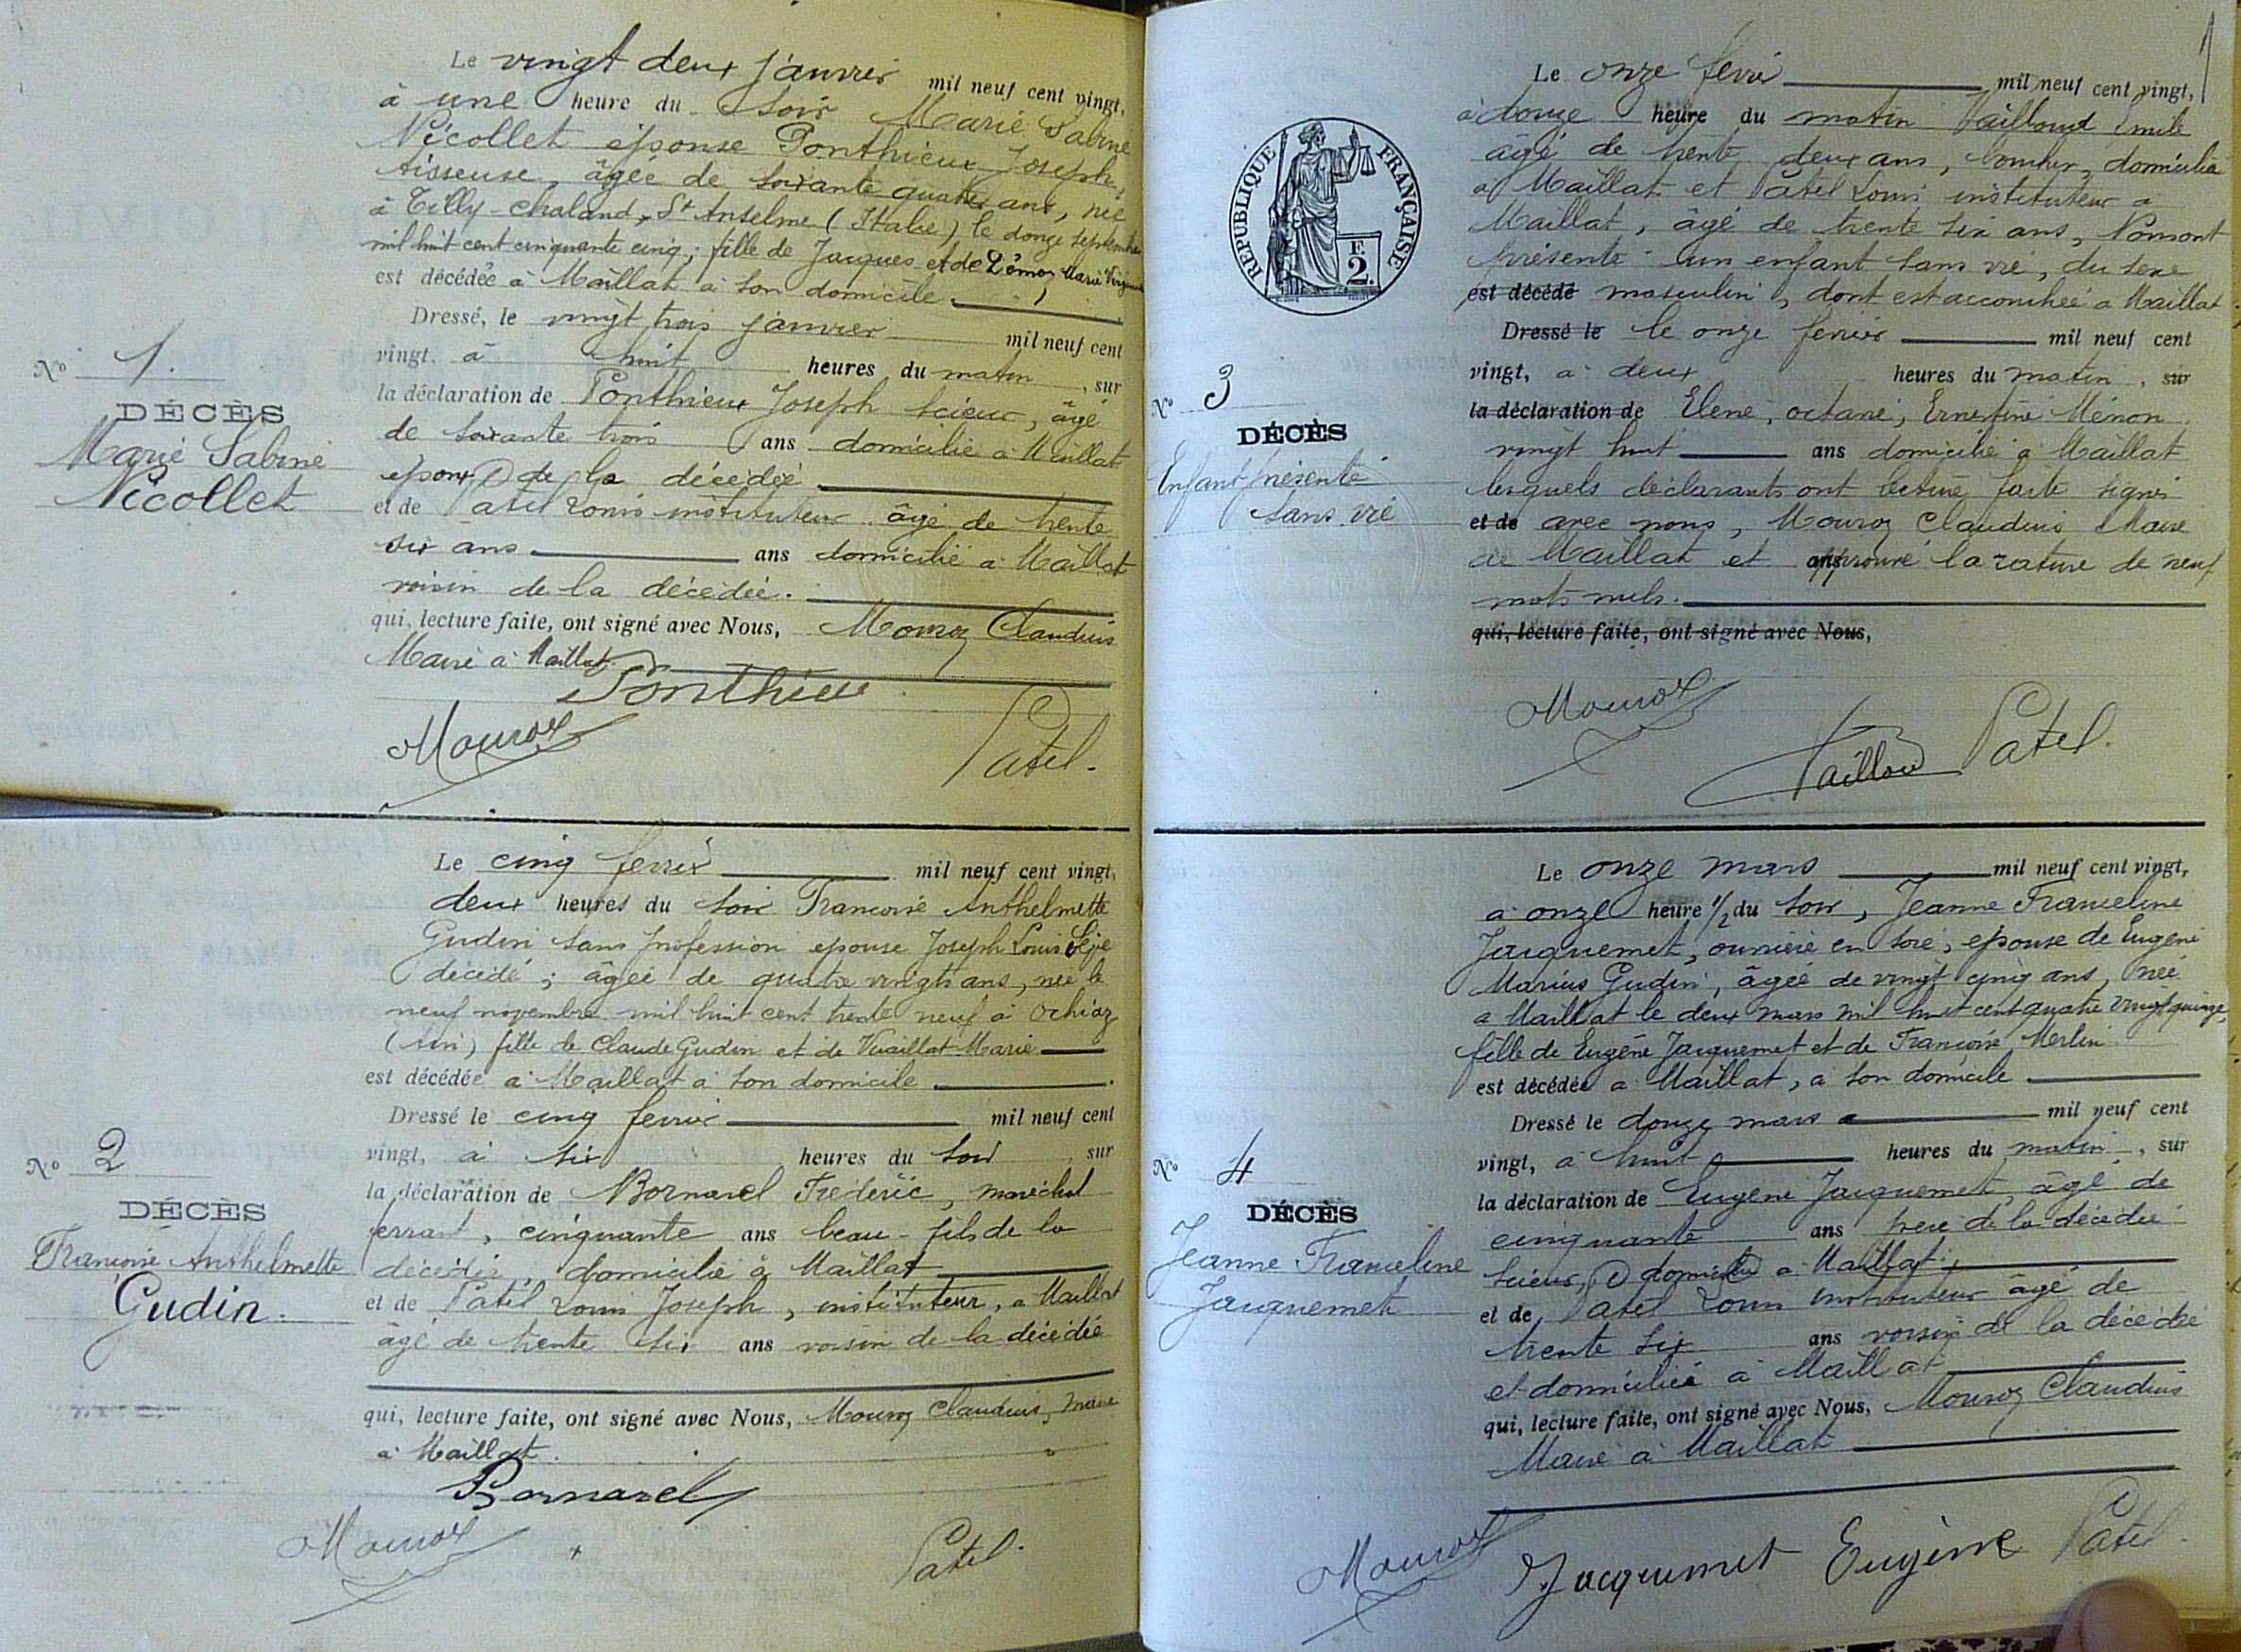 Le vingt deux janvier mil neuf cent vingt,
à une heure du soir Marie Sabine
Nicollet épouse Ponthieux Joseph,
tisseuse, âgée de soixante quatre ans, née
à Tilly-chaland, St Anselme (Italie) le douze septembre
mil huit cent cinquante cinq; fille de Jacques et de Marie
est décédée à Maillat à son domicile
Dressé, le vingt trois janvier mil neuf cent
vingt, à huit heures du matin, sur
la déclaration de Ponthieux Joseph scieur, âgé
de soixante trois ans domicilié à Maillat
époux de la décédée
et de Patel Louis instituteur âgé de trente
six ans ans domicilié à Maillat
voisin de la décédée.
qui, lecture faite, ont signé avec Nous, Mouroz Claudius
Maire à Maillat.
Ponthieu
Mouroz
Patel.
No 1.
DÉCÈS
Marie Sabine
Nicollet
Le cinq fevrier mil neuf cent vingt,
deux heures du soir Francoise Anthelmette
Gudin sans profession epouse Joseph Louis
décédé; âgée de quatre vingts ans, née le
neuf novembre mil huit cent trente neuf à Ochiaz
(Ain) fille de Claude Gudin et de Vuaillat Marie
est décédée à Maillat à son domicile
Dressé le cinq fevrier mil neuf cent
vingt, à six heures du soir, sur
la déclaration de Bornarel Frédéric, maréchal
ferrant, cinquante ans beau-fils de la
décédée, domicilié à Maillat
et de Patel Louis Joseph, instituteur, a Maillat
âgé de trente six ans voisin de la décédée
qui, lecture faite, ont signé avec Nous, Mouroz Claudius, maire
a Maillat.
Bornarel
Mouroz
Patel.
No 2
DÉCÈS
Françoise Anthelmette
Gudin.
1
Le onze fevrier mil neuf cent vingt,
à douze heure du matin Pailloud Emile
âgé de trente deux ans, domicilié
à Maillat et Patel Louis instituteur a
Maillat, âgé de trente six ans, Nous ont
présenté un enfant sans vie, du sexe
est décédé masculin, dont est accouchée a Maillat
Dressé le le onze fevrier mil neuf cent
vingt, a deux heures du matin, sur
la déclaration de Elene, octanie, Ernestine Ménon
vingt huit ans domicilié à Maillat
lesquels déclarants ont lecture faite signé
et de avec nous, Mouroz Claudius Maire
de Maillat et approuvé la rature de neuf
mots nuls.
qui, lecture faite, ont signé avec Nous,
Mouroz
Pailloud
Patel.
REPUBLIQUE FRANÇAISE
F.
2.
No 3
DÉCÈS
Enfant présenté
sans vie
Le onze mars mil neuf cent vingt,
a onze heure 1/2 du soir, Jeanne Franceline
Jacquemet, ouvrière en soie, epouse de Eugène
Marius Gudin, âgée de vingt cinq ans, née
a Maillat le deux mars mil huit cent quatre vingt quinze,
fille de Eugène Jacquemet et de Françoise Merlin
est décédée a Maillat, à son domicile
Dressé le douze mars mil neuf cent
vingt, a huit heures du matin, sur
la déclaration de Eugène Jacquemet, âgé de
cinquante ans père de la décédée
scieur, domicilié a Maillat;
et de Patel Louis instituteur âgé de
trente six ans voisin de la décédée
et domicilié à Maillat
qui, lecture faite, ont signé avec Nous, Mouroz Claudius
Maire à Maillat
Mouroz
Jacquemet Eugène
Patel
No 4
DÉCÈS
Jeanne Franceline
Jacquemet